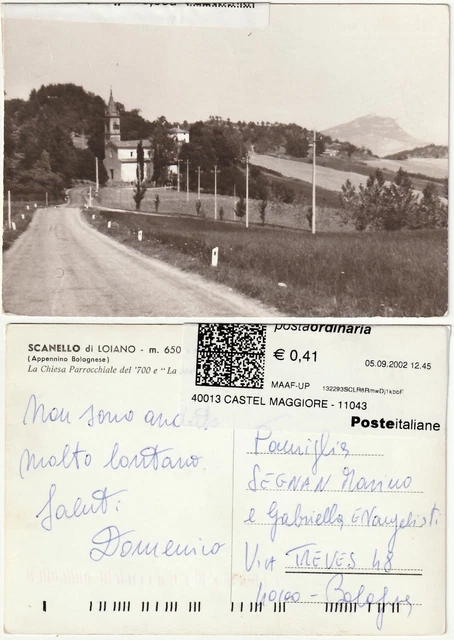 SCANELLO di LOIANO - m. 650
(Appennino Bolognese)
La Chiesa Parrocchiale del '700 e "La
postaordinaria
€ 0,41
05.09.2002 12.45
MAAF-UP
40013 CASTEL MAGGIORE - 11043
Posteitaliane
Non sono andato
molto lontano.
Saluti
Domenico
Famiglia
SEGNAN
e Gabriella EVangelisti
VIA TREVES 48
40100 - Bologna